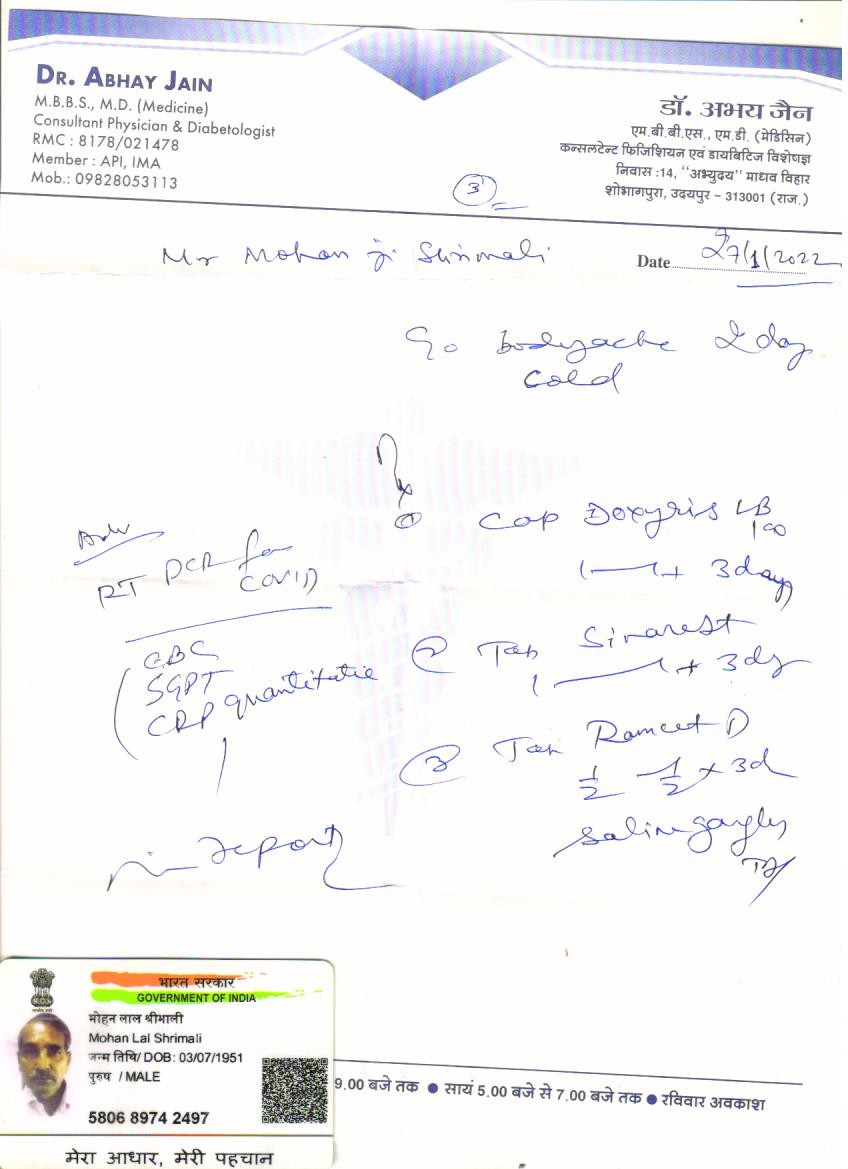 DR. ABHAY JAIN
M.B.B.S., M.D. (Medicine)
Consultant Physician & Diabetologist
RMC : 8178/021478
Member : API, IMA
Mob.: 09828053113
डॉ. अभय जैन
एम.बी.बी.एस., एम.डी. (मेडिसिन)
कन्सलटेन्ट फिजिशियन एवं डायबिटिज विशेषज्ञ
निवास :14, "अभ्युदय" माधव विहार
शोभागपुरा, उदयपुर – 313001 (राज.)
3
Mr Mohan ji Shrimali
Date 27/1/2022
C/o bodyache 2 day
cold
Rx
① Cap Doxyris LB
100
1——1 x 3 days
Adv
RT PCR for
COVID
CBC
SGPT
CRP quantitatie
② Tab Sinarest
1——1 x 3 dy
③ Tab Ramcet D
1/2 — 1/2 x 3d
Saline gargles
report
भारत सरकार
GOVERNMENT OF INDIA
मोहन लाल श्रीमाली
Mohan Lal Shrimali
जन्म तिथि/ DOB: 03/07/1951
पुरुष / MALE
5806 8974 2497
मेरा आधार, मेरी पहचान
9.00 बजे तक ● सायं 5.00 बजे से 7.00 बजे तक ● रविवार अवकाश